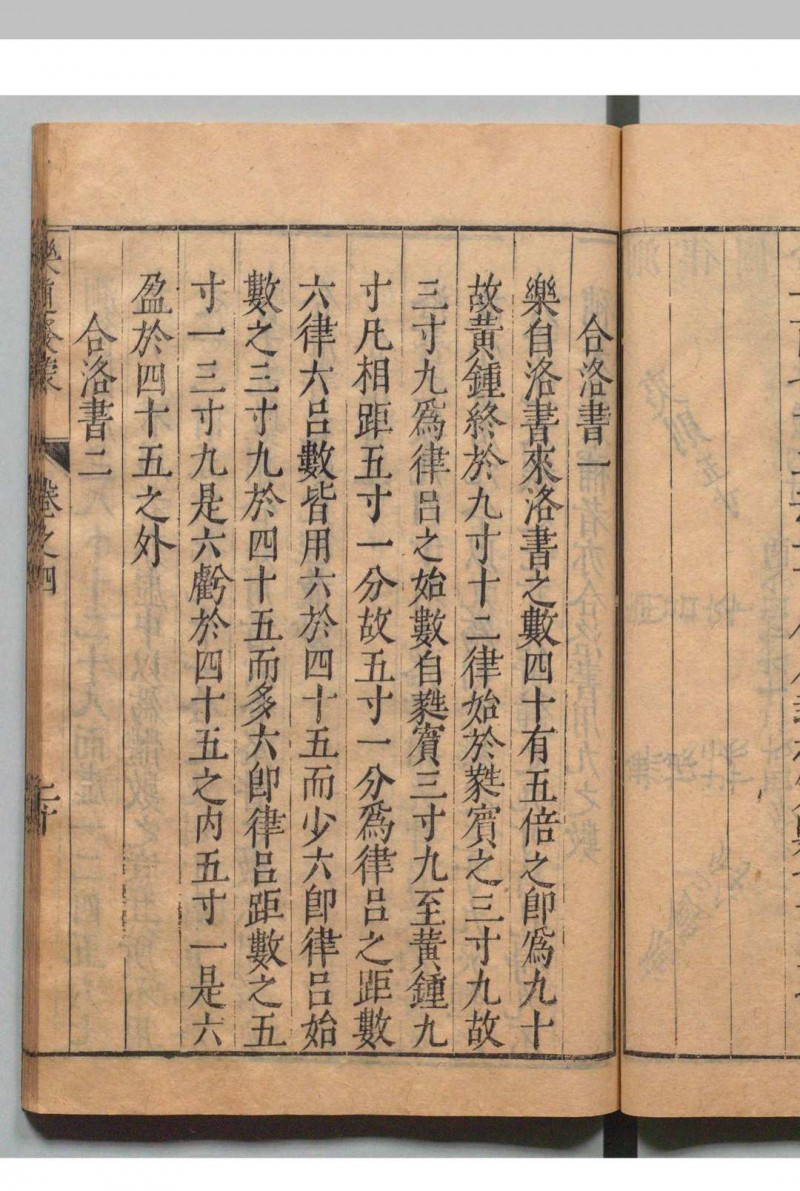 合洛書一
樂自洛書來洛書之數四十有五倍之卽爲九十
故黃鍾終於九寸十二律始於蕤賓之三寸九故
三寸九爲律呂之始數自蕤賓三寸九至黃鍾九
寸凡相距五寸一分故五寸一分爲律呂之距數
六律六呂數皆用六於四十五而少六卽律呂始
數之三寸九於四十五而多六卽律呂距數之五
寸一三寸九是六虧於四十五之内五寸一是六
盈於四十五之外
合洛書二
卷之四